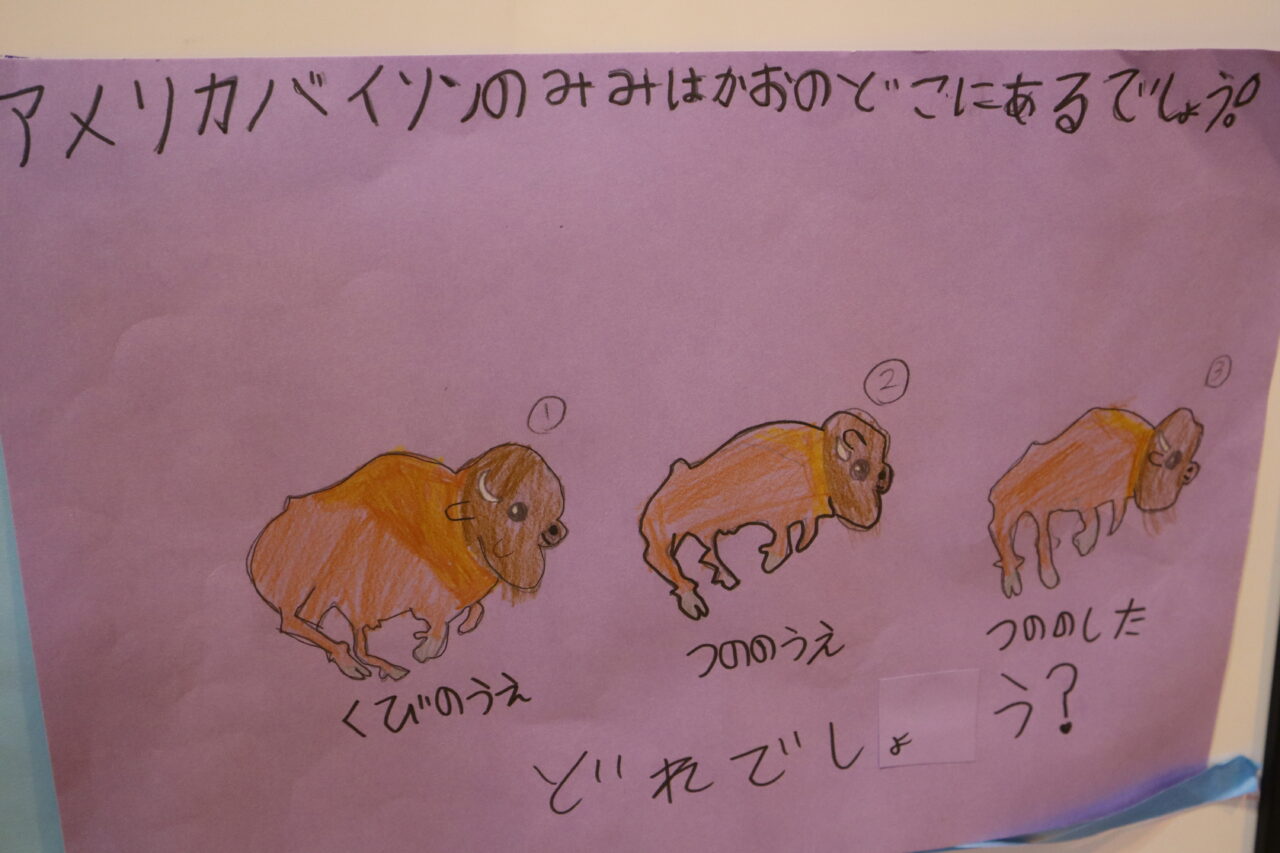 アメリカバイソンのみみはかおのどこにあるでしょう。
①
②
③
くびのうえ
つののうえ
つののした
どれでしょう?